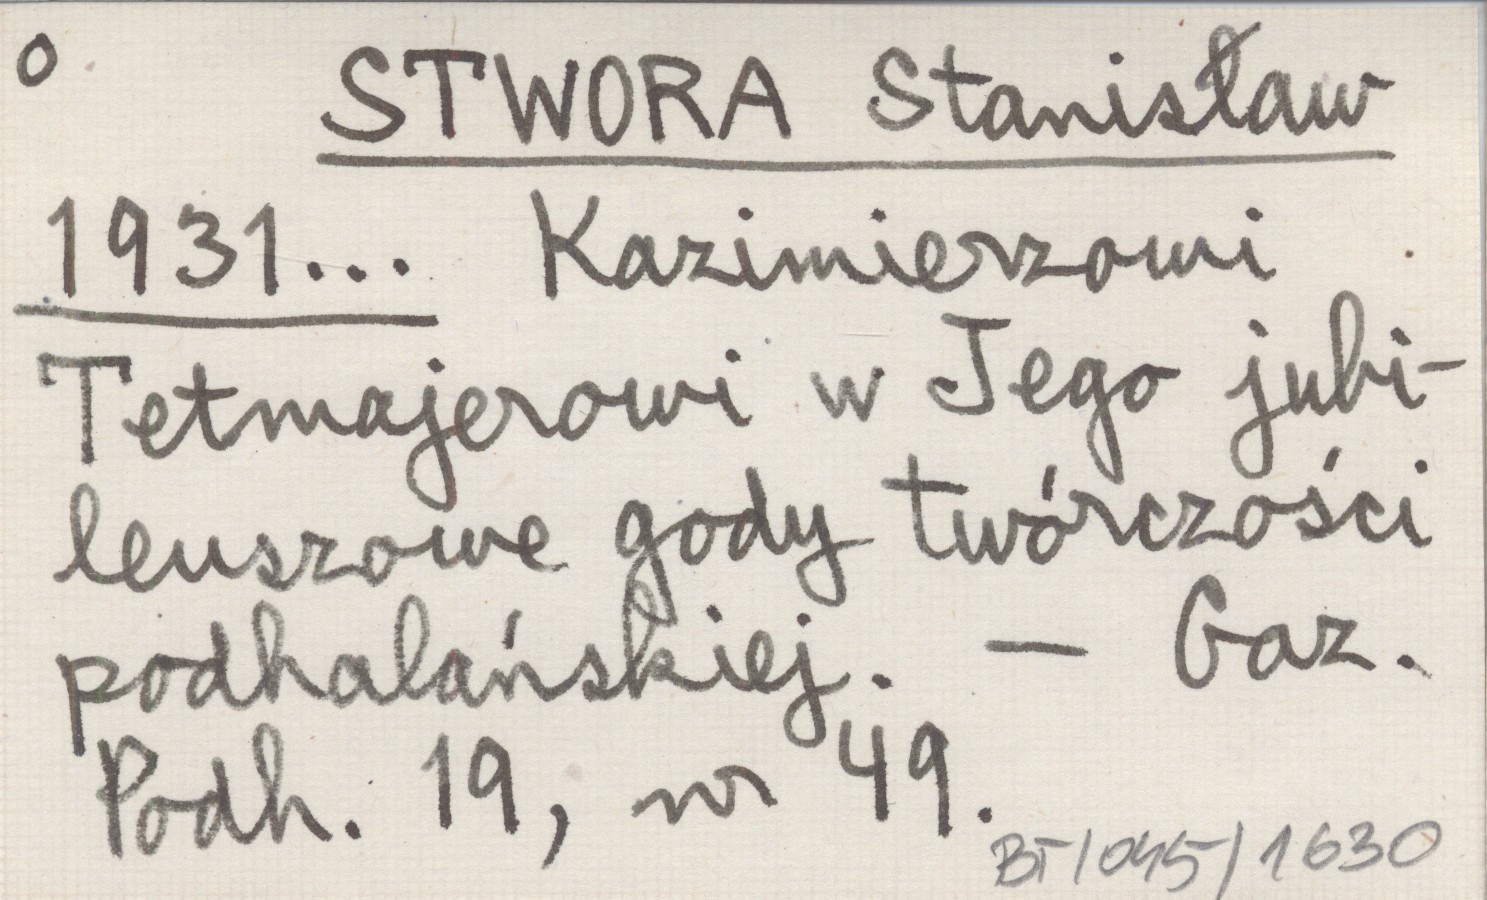 o STWORA Stanisław
1931... Kazimierzowi
Tetmajerowi w Jego jubi-
leuszowe gody twórczości
podhalańskiej. — Gaz.
Podh. 19, nr 49.
BT/045/1630